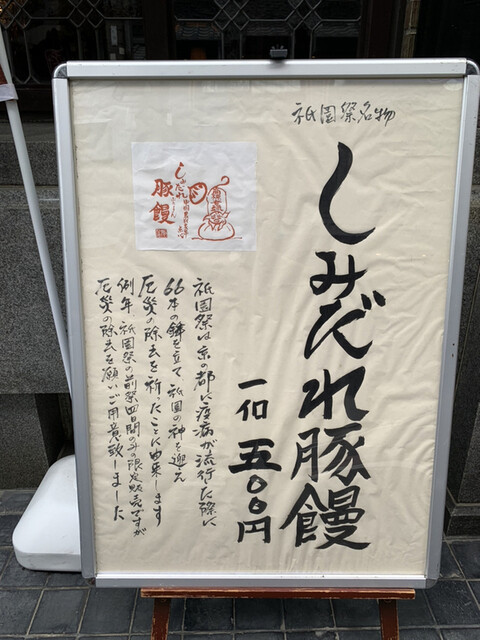 祇園祭名物
しみだれ豚饅
一個 五〇〇円
しみだれ
豚饅
祇園祭は京の都に疫病が流行した際に
66本の鉾を立て祇園の神を迎え
厄災の除去を祈ったことに由来します
例年、祇園祭の前祭四日間のみの限定販売ですが
厄災の除去を願いご用意致しました